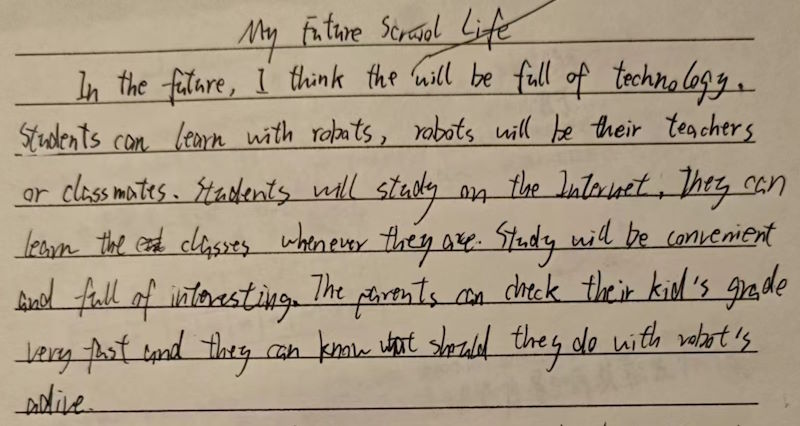 My Future School Life
In the future, I think the will be full of technology.
Students can learn with robats, robots will be their teachers
or classmates. Students will study on the Internet. They can
learn the classes whenever they are. Study will be convenient
and full of interesting. The parents can check their kid's grade
very fast and they can know what should they do with robot's
adive.